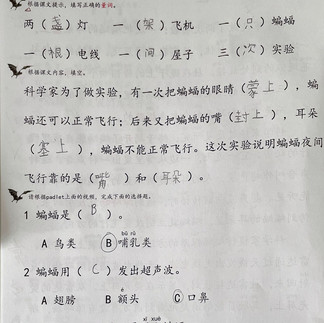 根据课文提示,填写正确的量词。
两(盏)灯 一(架)飞机 一(只)蝙蝠
一(根)电线 一(间)屋子 三(次)实验
根据课文内容,填空。
科学家为了做实验,有一次把蝙蝠的眼睛(蒙上),蝙
蝠还可以正常飞行;后来又把蝙蝠的嘴(封上),耳朵
(塞上),蝙蝠不能正常飞行。这次实验说明蝙蝠夜间
飞行靠的是(嘴)和(耳朵)。
请根据padlet上面的视频,完成下面的选择题。
1 蝙蝠是(B)。
bǔ rǔ
A 鸟类 B 哺乳类
2 蝙蝠用(C)发出超声波。
é
A 翅膀 B 额头 C 口鼻
xī xuè